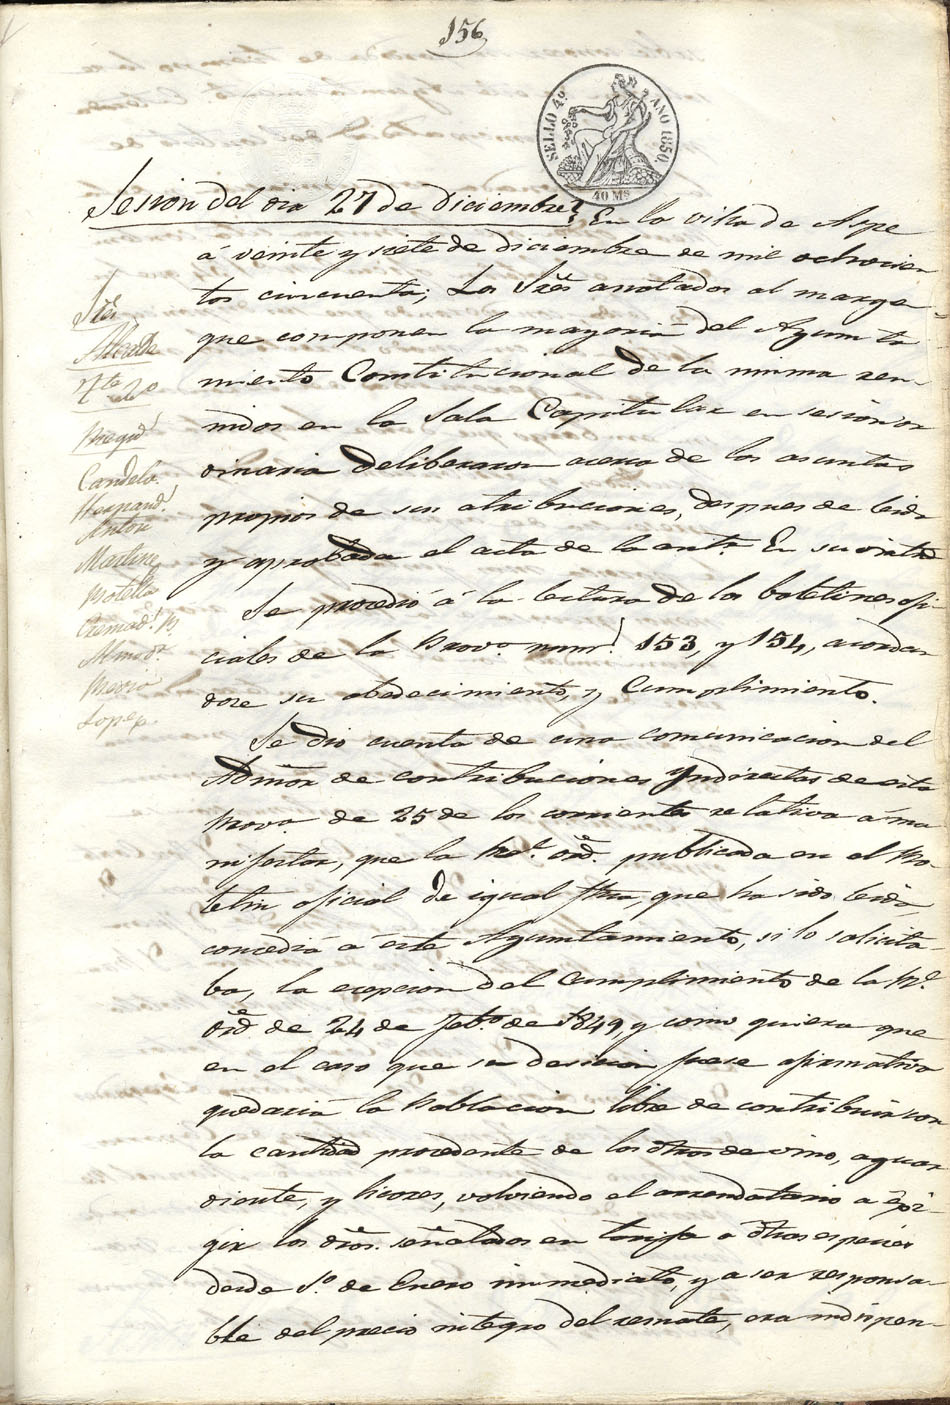 156
SELLO 4º AÑO 1850.
40 Ms
Sesion del dia 27 de Diciembre
En la villa de Aspe
á veinte y siete de diciembre de mil ochocien
tos cincuenta; Los Sres anotados al margen
que componen la mayoria del Ayunta
miento Constitucional de la misma reu-
nidos en la Sala Capitular en sesion or
dinaria deliberaron acerca de los asuntos
propios de sus atribuciones, despues de leida
y aprobada el acta de la antr. En su virtud
Sres
Alcalde
Tte 2º
Regid
Candela
Hernand.
Anton
Martine
Botella
Cremad. M
Almod.
Lopez.
Se procedió á la lectura de los boletines ofi-
ciales de la Prova. nums. 153, y 154, acordan
dose su obedecimiento, y Cumplimiento.
Se dio cuenta de una comunicacion del
Admor de contribuciones Yndirectas de esta
Prova. de 25 de los corrientes relativa á ma
nifestar, que la Rl. ord. publicada en el Bo-
letin oficial de igual fha, que ha sido leida,
concedia á éste Ayuntamiento, si lo solicita-
ba, la ecepcion del Cumplimiento de la Rl.
ord de 24 de Febo. de 1849, y como quiera que
en el caso que su desicion fuese afirmativa
quedaria la Poblacion libre de contribuir con
la cantidad procedente de los dros de vino, aguar
diente, y licores, volviendo el arrendatario a exi-
gir los dros. señalados en tarifa a dhas especies
desde 1º. de Enero inmediato, y a ser responsa-
ble del precio integro del remate, era indispen-